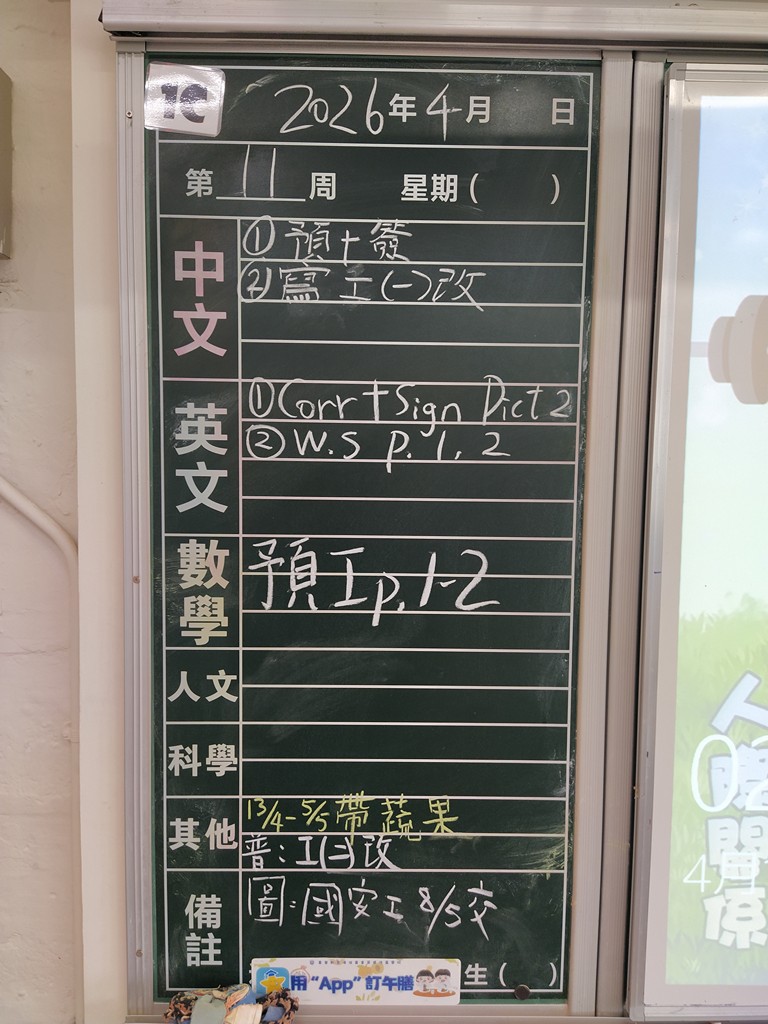 1C
2026年4月 日
第11周 星期( )
中文
①預+簽
②寫工(一)改
英文
①Corr+Sign Dict 2
②W.S p.1,2
數學
預工p.1-2
人文
科學
其他
13/4-5/5帶蔬果
普:工(二)改
備註
圖:國安工8/5交
用“App”訂午膳
生( )
人
際
關
係
02
4月